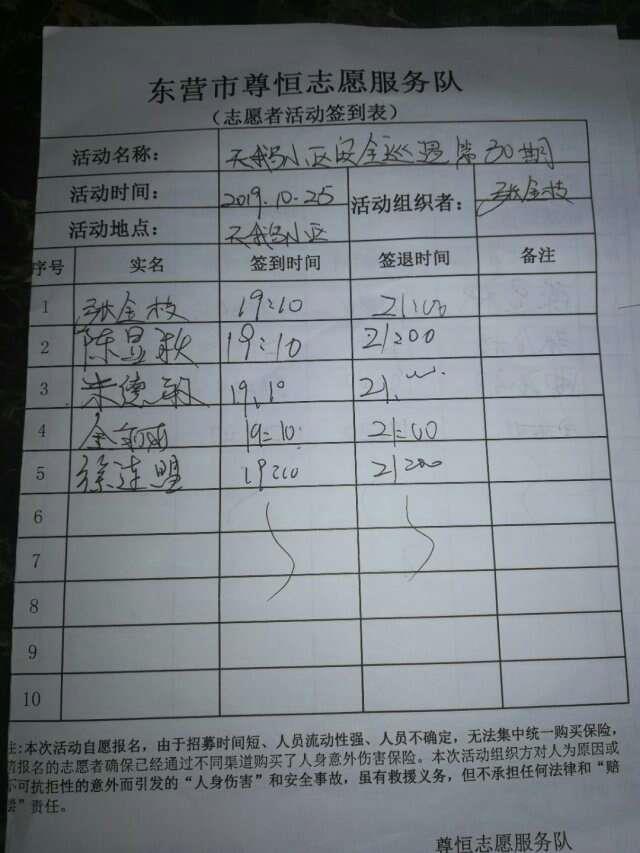 东营市尊恒志愿服务队
（志愿者活动签到表）
活动名称： 天鹅小区安全巡逻第30期
活动时间： 2019.10.25 活动组织者： 张金枝
活动地点： 天鹅小区
序号 实名 签到时间 签退时间 备注
1 张金枝 19:10 21:00
2 陈昱秋 19:10 21:00
3 朱德 19:10 21:00
4 19:10 21:00
5 徐连盟 19:10 21:00
6
7
8
9
10
注:本次活动自愿报名，由于招募时间短、人员流动性强、人员不确定，无法集中统一购买保险，
报名的志愿者确保已经通过不同渠道购买了人身意外伤害保险。本次活动组织方对人为原因或
不可抗拒性的意外而引发的“人身伤害”和安全事故，虽有救援义务，但不承担任何法律和“赔
偿”责任。
尊恒志愿服务队